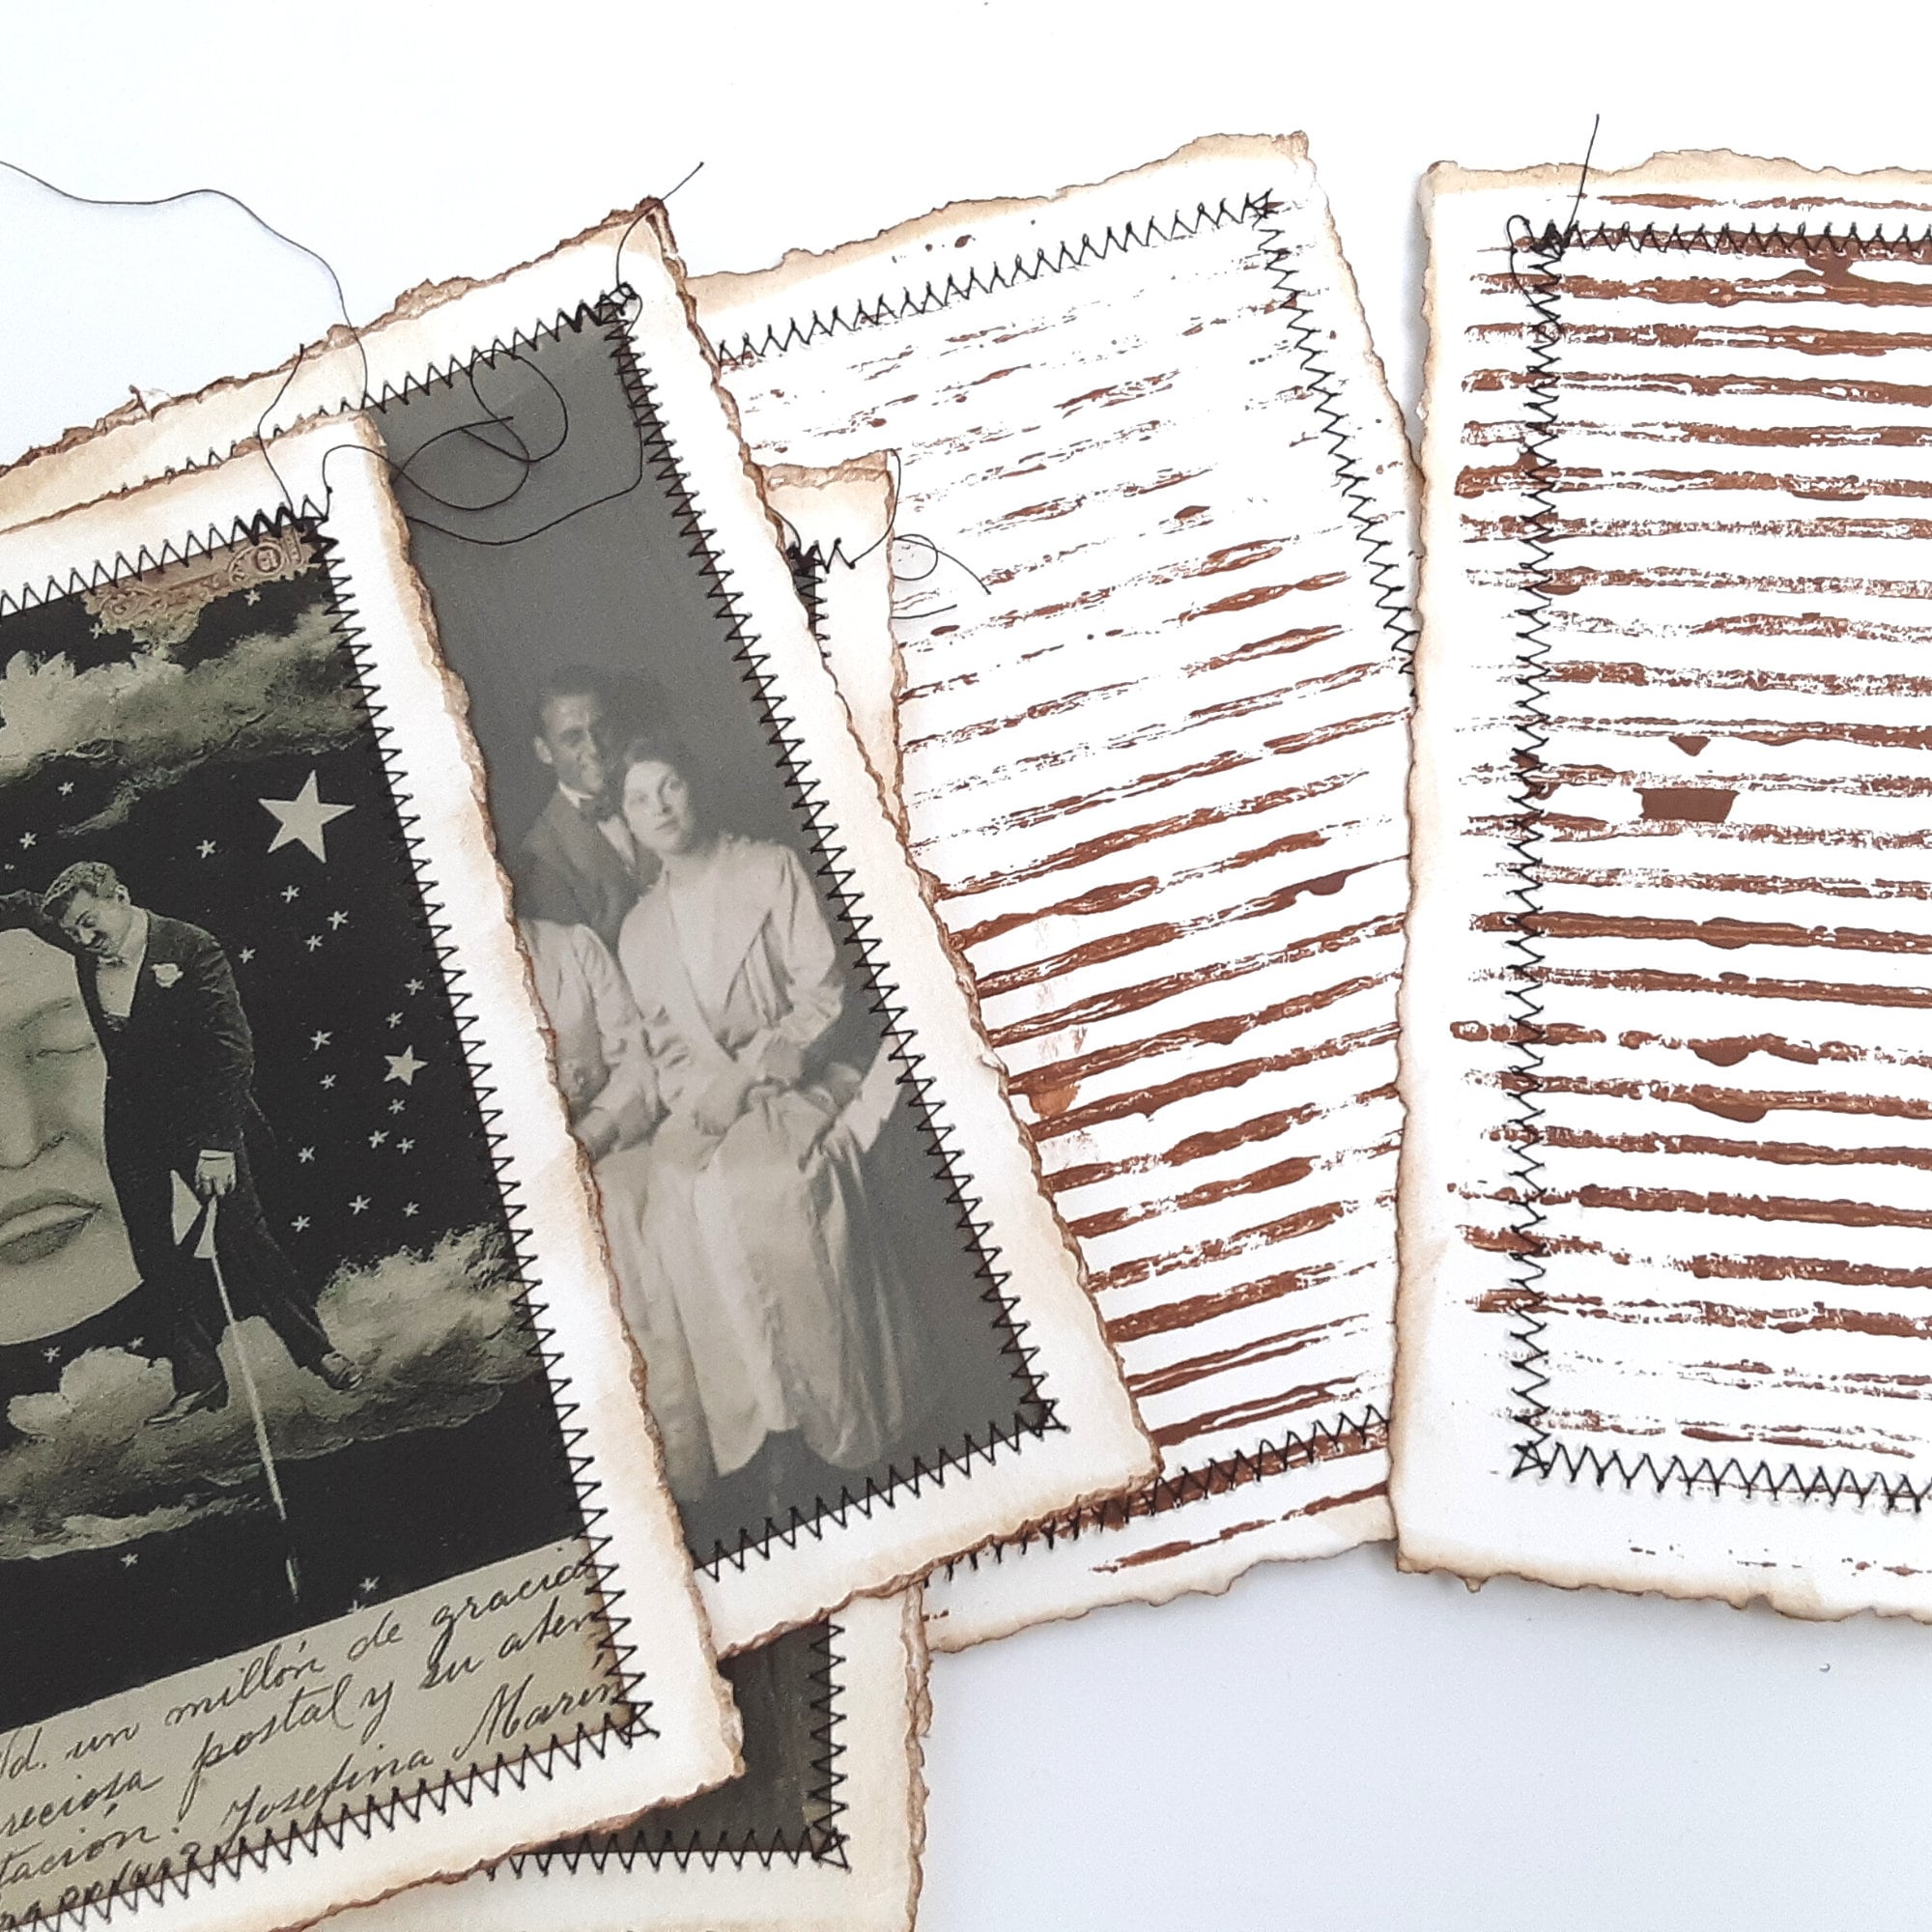 d. un millón de gracia
reciosa postal y su aten
tación. Josefina Marín